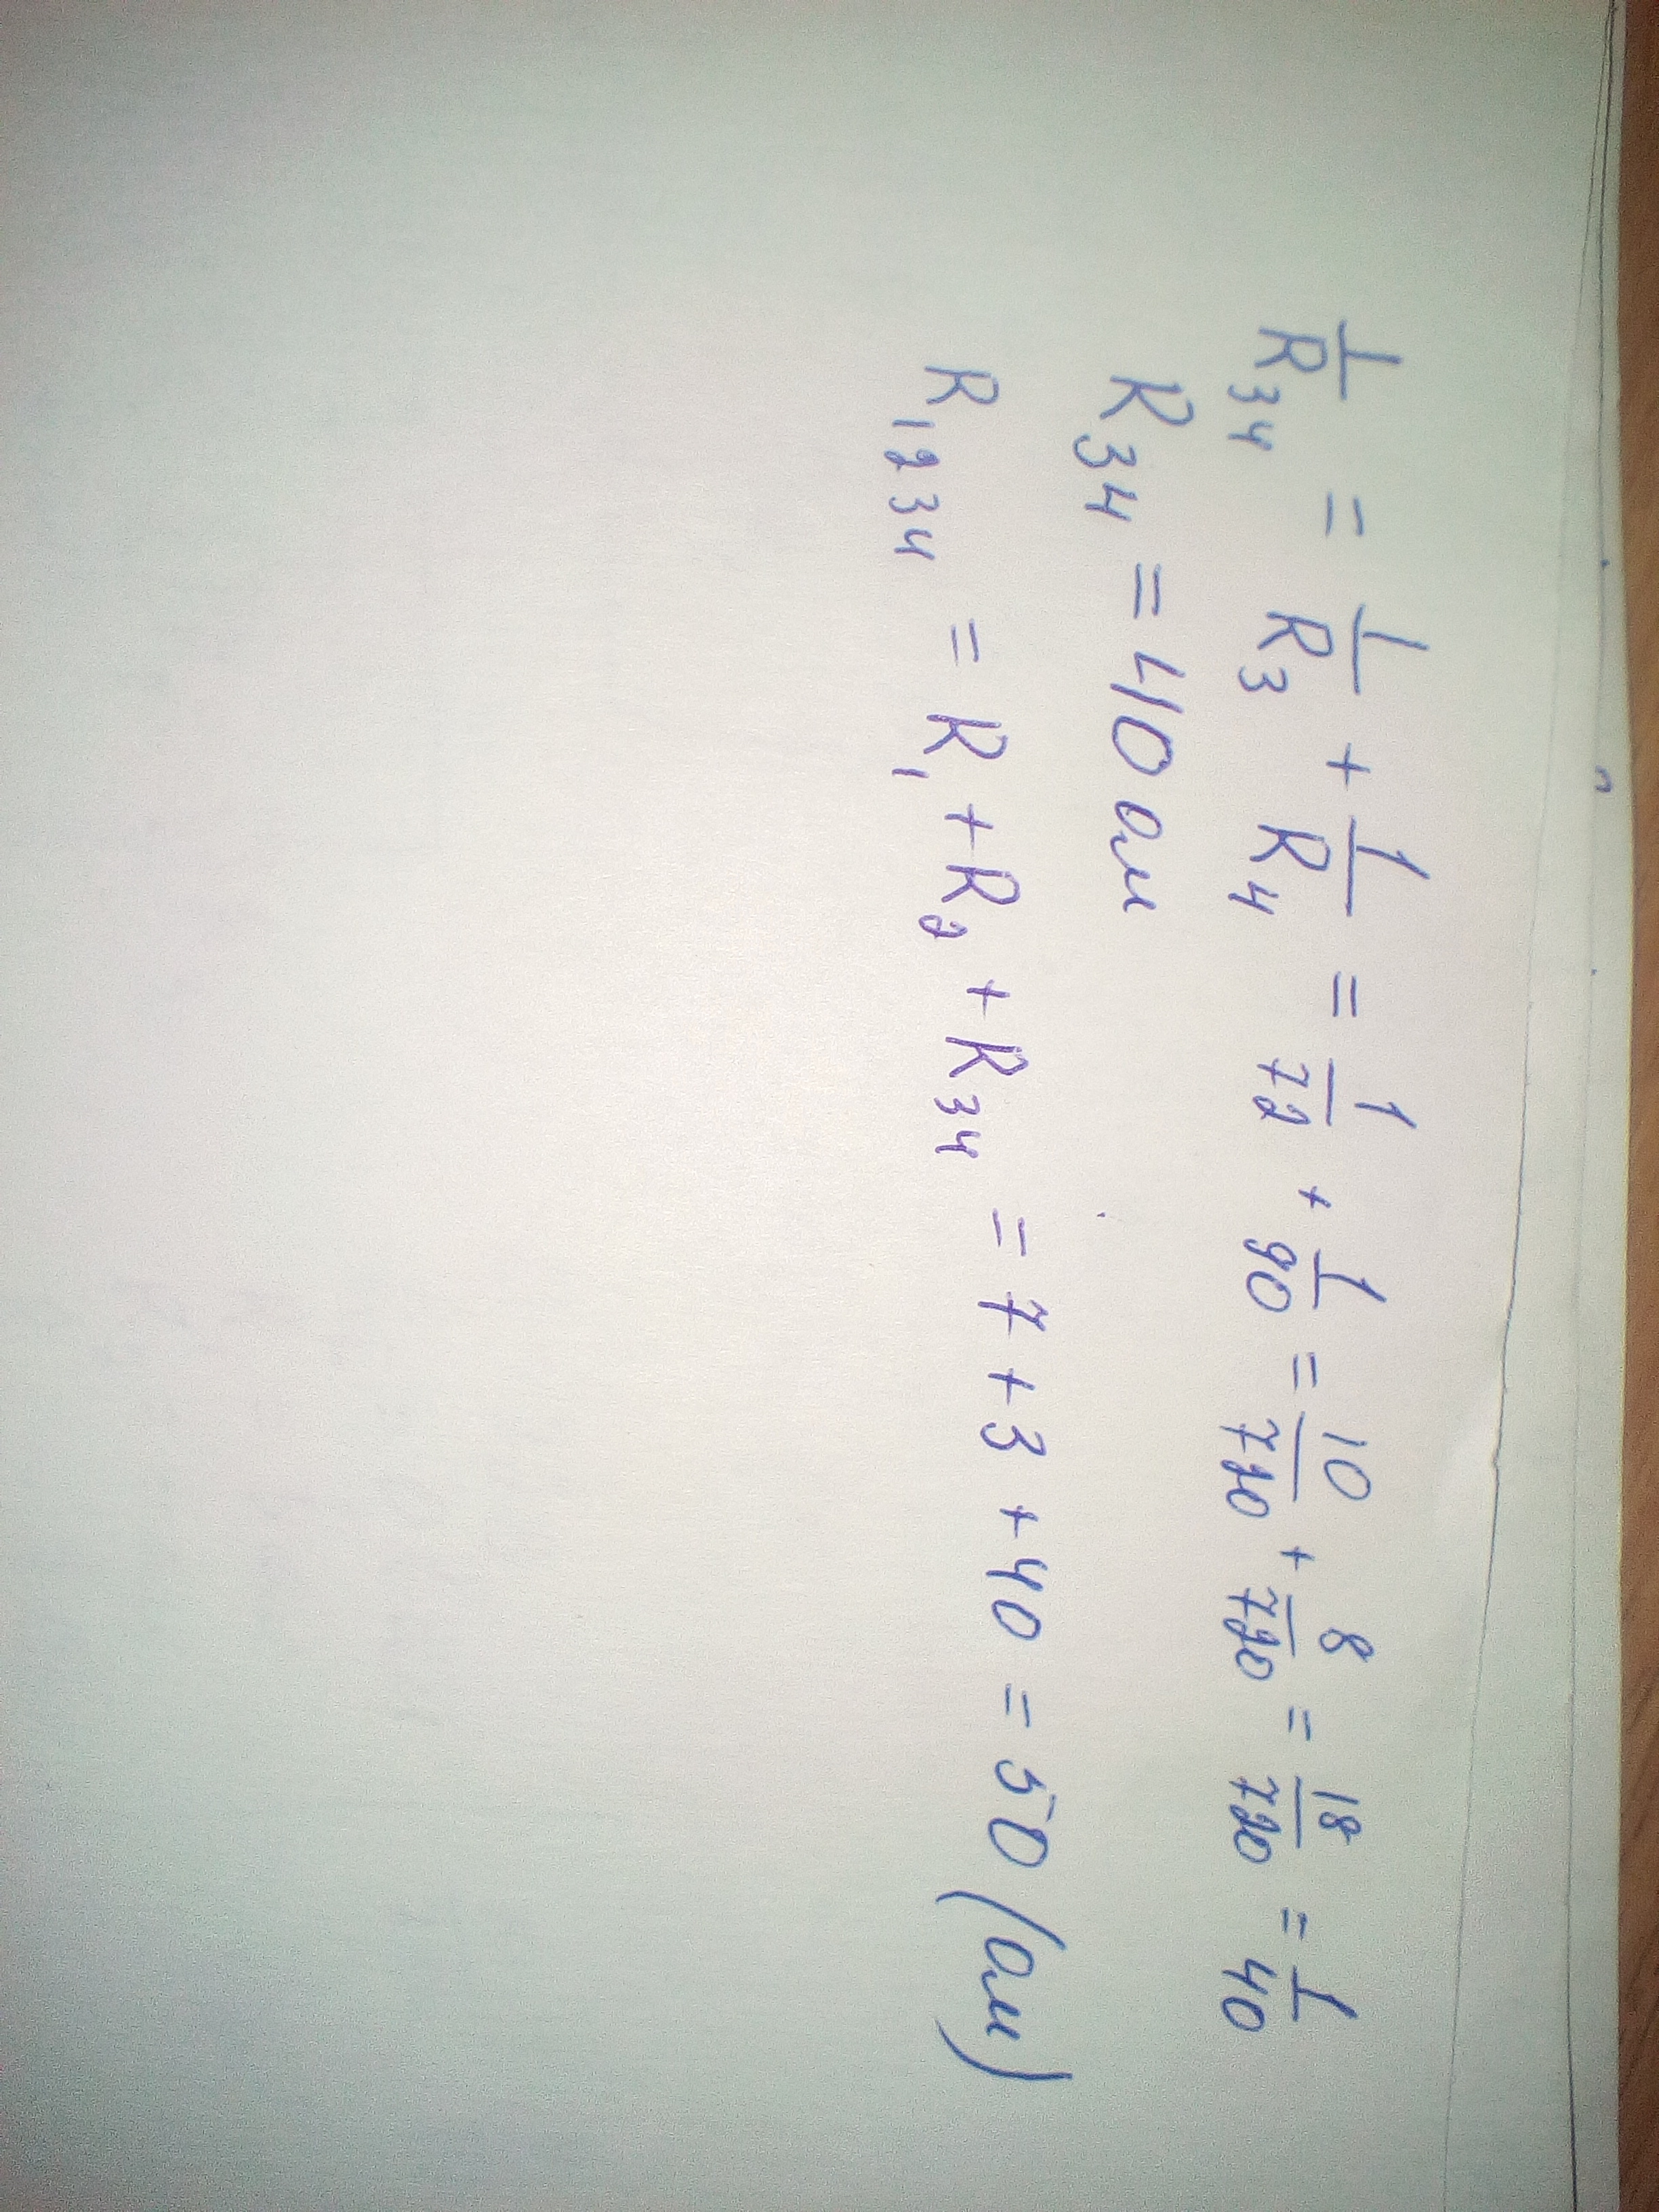 1/R34 = 1/R3 + 1/R4 = 1/72 + 1/90 = 10/720 + 8/720 = 18/720 = 1/40
R34 = 40 ом
R1234 = R1 + R2 + R34 = 7 + 3 + 40 = 50 (ом)